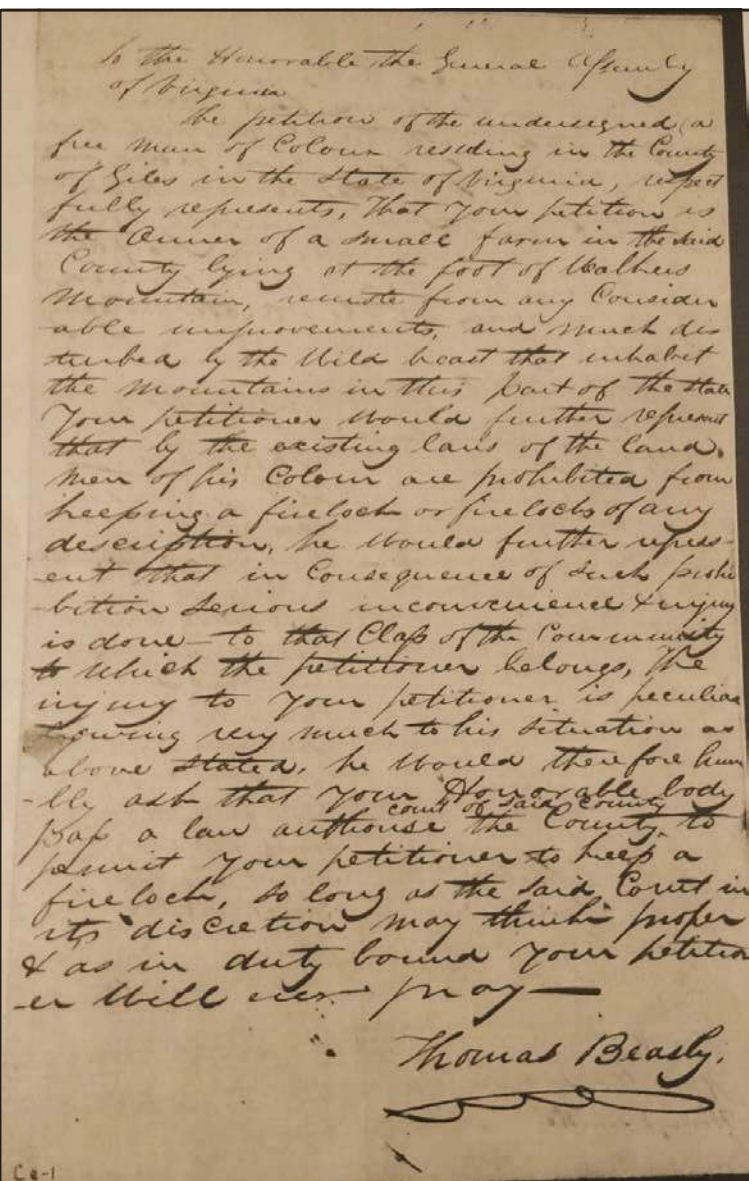 To the Honorable the General Assembly
of Virginia
The petition of the undersigned (a
free man of Colour residing in the County
of Giles in the State of Virginia, respect
fully represents, That your petition is
the Owner of a small farm in the said
County lying at the foot of Walkers
Mountain, remote from any Consider
-able improvements, and much dis
turbed by the Wild beast that inhabit
the mountains in this part of the State
Your petitioner would further represent
that by the existing laws of the land,
men of his Colour are prohibited from
keeping a firelock or firelocks of any
description, he would further repres-
-ent that in Consequence of such prohi
-bition serious inconvenience & injury
is done to that Class of the Community
to which the petitioner belongs, The
injury to your petitioner is peculiar
owing very much to his situation as
above stated, he would therefore hum
-bly ask that your Honorable body
court of said county
pass a law authorise the County to
permit your petitioner to keep a
firelock, so long as the said Court in
its discretion may think proper
& as in duty bound your petition
-er Will ever pray—
Thomas Beasly.
Ce-1